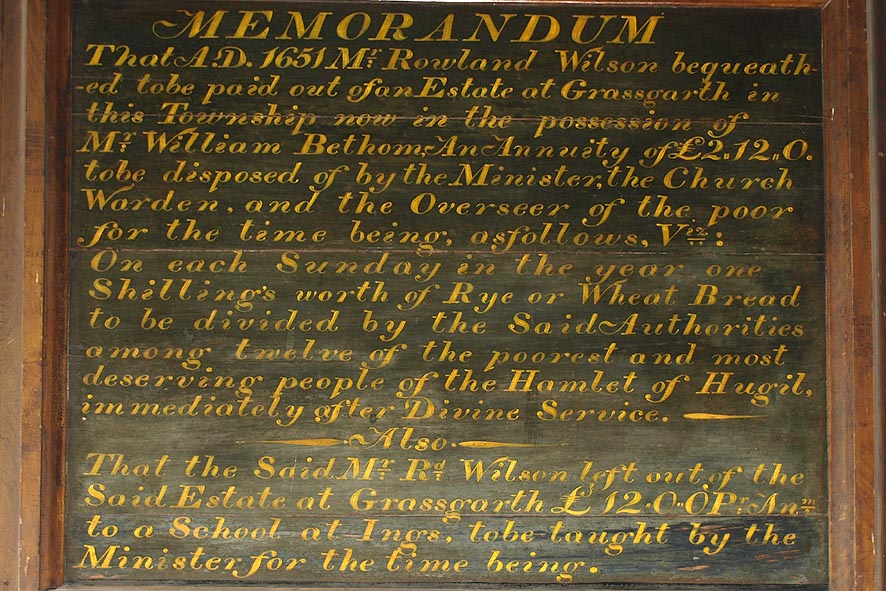 MEMORANDUM
That A.D. 1651 Mr. Rowland Wilson bequeath-
-ed tobe paid out of an Estate at Grassgarth in
this Township now in the possession of
Mr. William Bethom, An Annuity of £2,,12,,0.
tobe disposed of by the Minister, the Church
Warden, and the Overseer of the poor
for the time being, as follows, Viz:
On each Sunday in the year one
Shilling's worth of Rye or Wheat Bread
to be divided by the Said Authorities
among twelve of the poorest and most
deserving people of the Hamlet of Hugil,
immediately after Divine Service.
Also
That the Said Mr. Rd. Wilson left out of the
Said Estate at Grassgarth £ 12.0-0 Pr. Anm.
to a School at Ings, tobe taught by the
Minister for the time being.